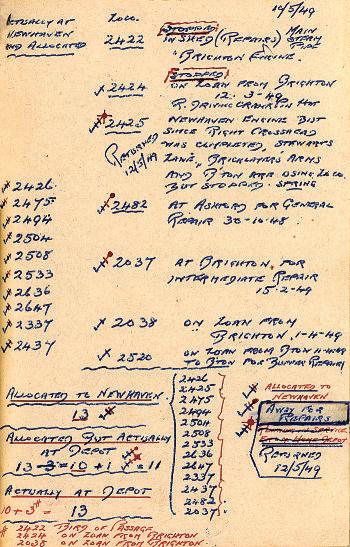 10/5/49
ACTUALLY AT NEWHAVEN AND ALLOCATED
LOCO.
2422 STOPPED IN SHED (REPAIRS) MAIN STEAM PIPE
"BRIGHTON ENGINE.
STOPPED
x 2424 ON LOAN FROM BRIGHTON
12.3.49
x 2425 R. DRIVING CRANKPIN HOT
NEWHAVEN ENGINE BUT
SINCE RIGHT CROSSHEAD
WAS COMPLETED, STEWARTS
LANE, BRICKLAYERS ARMS
AND B'TON ARE USING LOCO.
BUT STOPPED: SPRING
RETURNED
12/5/49
x 2426
x 2475
x 2494
x 2504
x 2508
x 2533
x 2636
x 2647
x 2337
x 2437
x 2482 AT ASHFORD FOR GENERAL
REPAIR 30-10-48
x 2037 AT BRIGHTON, FOR
INTERMEDIATE REPAIR
15.2-49
x 2038 ON LOAN FROM
BRIGHTON, 1-4-49
x 2520 ON LOAN FROM B'TON
TO B'TON FOR REPAIR)
ALLOCATED TO NEWHAVEN
13
ALLOCATED BUT ACTUALLY
AT DEPOT
13 - 3 = 10 + 1 = 11
ACTUALLY AT DEPOT
10 + 3 = 13
2426
2425
2475
2494
2504
2508
2533
2636
2647
2337
2437
2482
2037
ALLOCATED TO
NEWHAVEN
AWAY FOR
REPAIRS
FROM HOME DEPOT
RETURNED
12/5/49
# 2422 BIRD OF PASSAGE
# 2424 ON LOAN FROM BRIGHTON
2038 ON LOAN FROM BRIGHTON